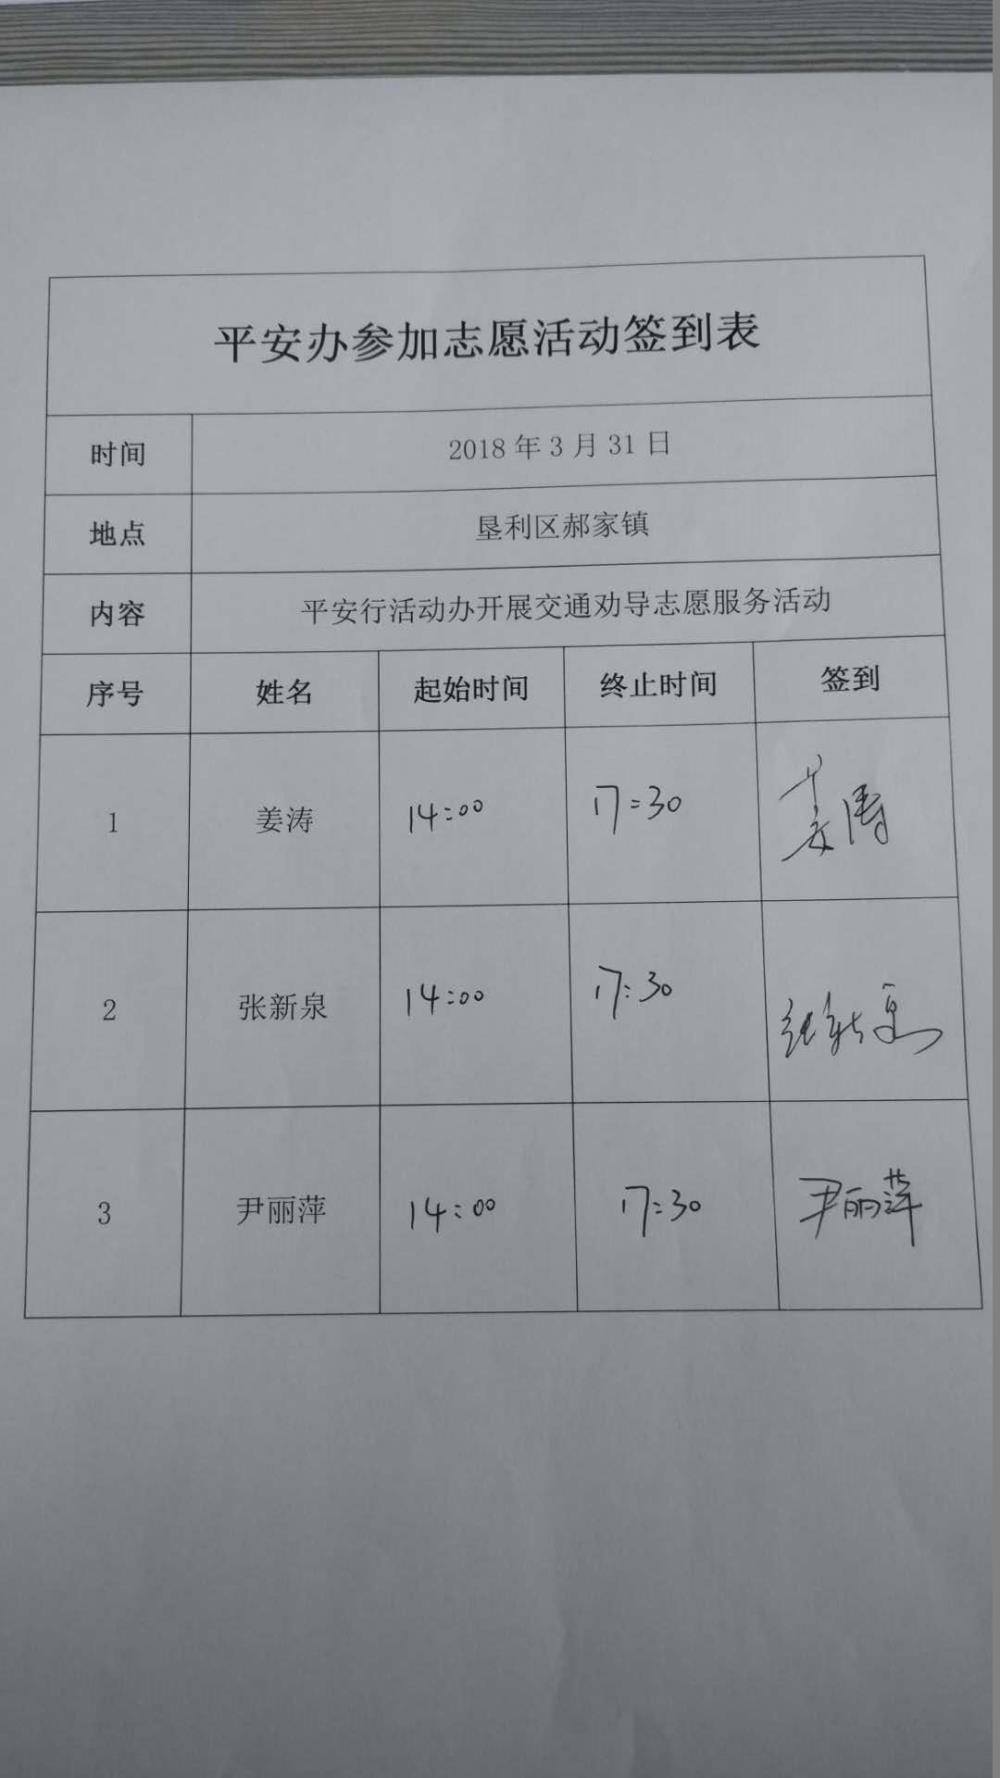 平安办参加志愿活动签到表
时间 2018 年 3 月 31 日
地点 垦利区郝家镇
内容 平安行活动办开展交通劝导志愿服务活动
序号 姓名 起始时间 终止时间 签到
1 姜涛 14:00 17:30 姜涛
2 张新泉 14:00 17:30 张新泉
3 尹丽萍 14:00 17:30 尹丽萍